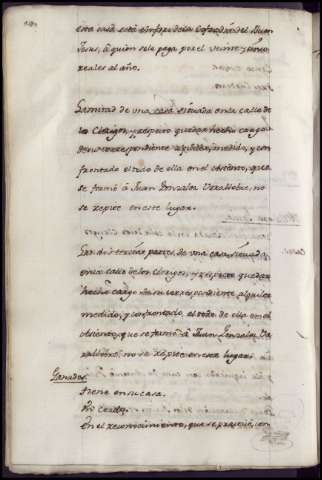 esta casa está
Jesus, á quien se le paga por el veinte y cinco
reales al año.
La mitad de una casa situada en la calle de
los Clerigos, y respecto quedar hecho cargo
de su correspondiente alquiler, medido, y con
frontado el todo de ella en el Asiento, que
se formó á Juan Gonzalez no
se repite en este lugar.
Las dos tercias partes de una casa, situada
en la calle de los Clerigos, y respecto quedar
hecho cargo de su correspondiente alquiler
medido, y confrontado, el todo de ella en el
Asiento, que se formó á Juan Gonzalez
no se repite en este lugar.
Ganados
Tiene en su casa.
Un Cerdo.
En el reconocimiento, que se practicó, con